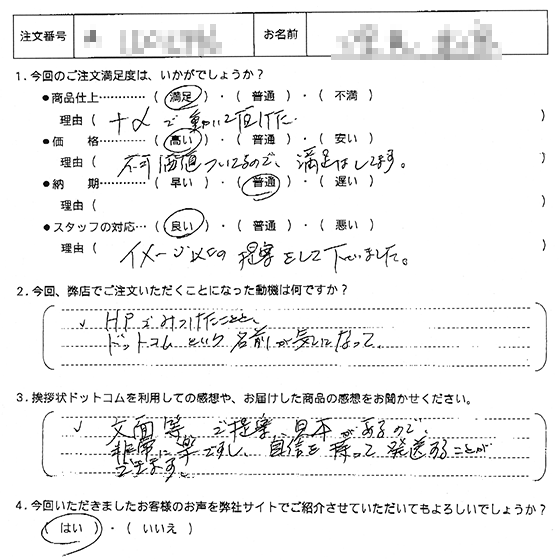 注文番号 お名前
1.今回のご注文満足度は、いかがでしょうか?
●商品仕上…………( 満足 )・( 普通 )・( 不満 )
理由( +αで動いて頂けた. )
●価 格…………( 高い )・( 普通 )・( 安い )
理由( 不可価値ついてるので、満足はしてます。 )
●納 期…………( 早い )・( 普通 )・( 遅い )
理由( )
●スタッフの対応…( 良い )・( 普通 )・( 悪い )
理由( イメージ以上の提案をして下さいました。 )
2.今回、弊店でご注文いただくことになった動機は何ですか?
HPでみつけたことと、
ドットコムという名前が気になって
3.挨拶状ドットコムを利用しての感想や、お届けした商品の感想をお聞かせください。
文面等、ご提案、見本があるので、
非常に楽ですし、自信を持って発送することが
できます。
4.今回いただきましたお客様のお声を弊社サイトでご紹介させていただいてもよろしいでしょうか?
( はい )・( いいえ )